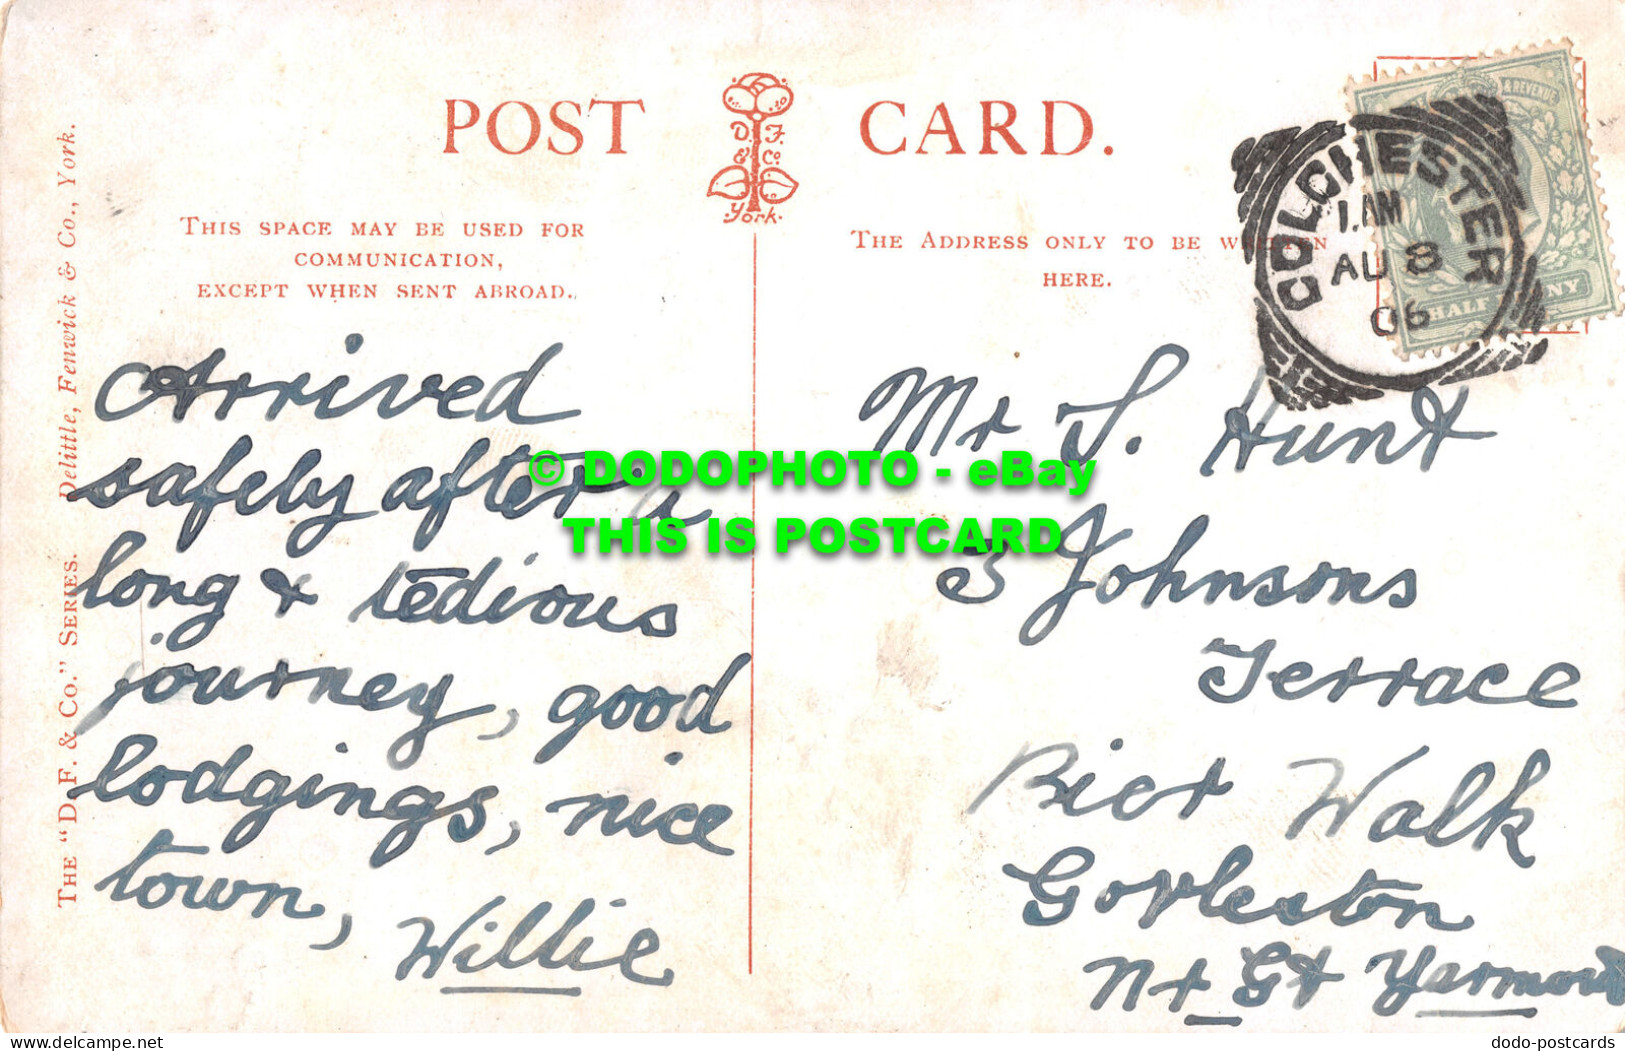 POST CARD.
D. F. & Co. York.
THIS SPACE MAY BE USED FOR
COMMUNICATION,
EXCEPT WHEN SENT ABROAD.
THE ADDRESS ONLY TO BE WRITTEN
HERE.
& REVENUE
HALFPENNY
COLCHESTER
1. AM
AU 8
06
THE "D. F. & CO." SERIES. Delittle, Fenwick & Co., York.
Arrived
safely after a
long & tedious
journey, good
lodgings, nice
town,
Willie
Mr S. Hunt
3 Johnsons
Terrace
Pier Walk
Gorleston
Nr Gt Yarmouth
© DODOPHOTO - eBay
THIS IS POSTCARD
dodo-postcards